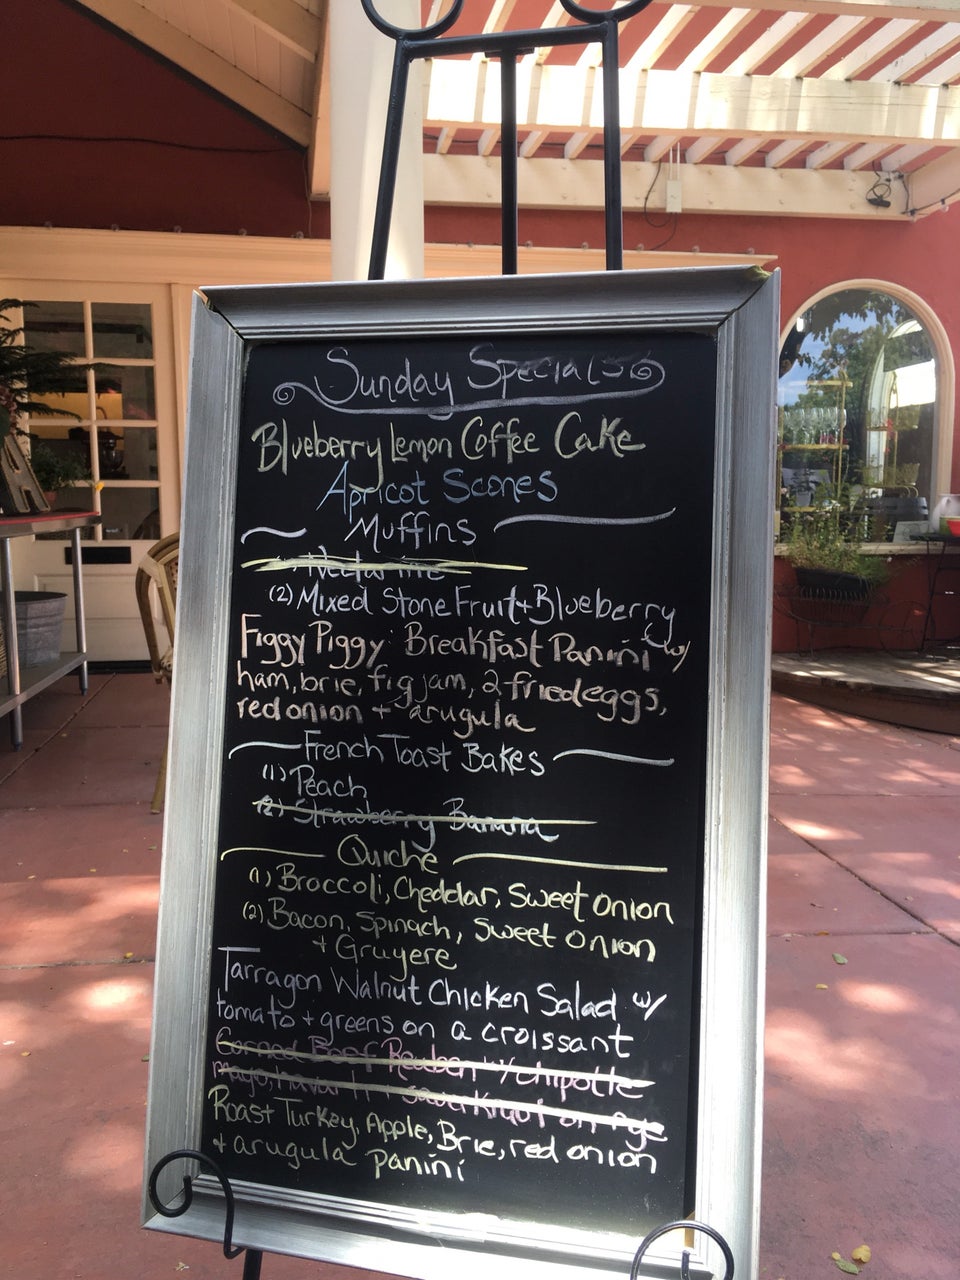 Sunday Specials
Blueberry Lemon Coffee Cake
Apricot Scones
Muffins
Nectarine
(2) Mixed Stone Fruit + Blueberry
Figgy Piggy Breakfast Panini w/
ham, brie, fig jam, 2 fried eggs,
red onion + arugula
French Toast Bakes
(1) Peach
(2) Strawberry Banana
Quiche
(1) Broccoli, Cheddar, Sweet Onion
(2) Bacon, Spinach, Sweet Onion
+ Gruyere
Tarragon Walnut Chicken Salad w/
tomato + greens on a croissant
Corned Beef Reuben w/ chipotle
mayo, havarti + sauerkraut on rye
Roast Turkey, Apple, Brie, red onion
+ arugula panini